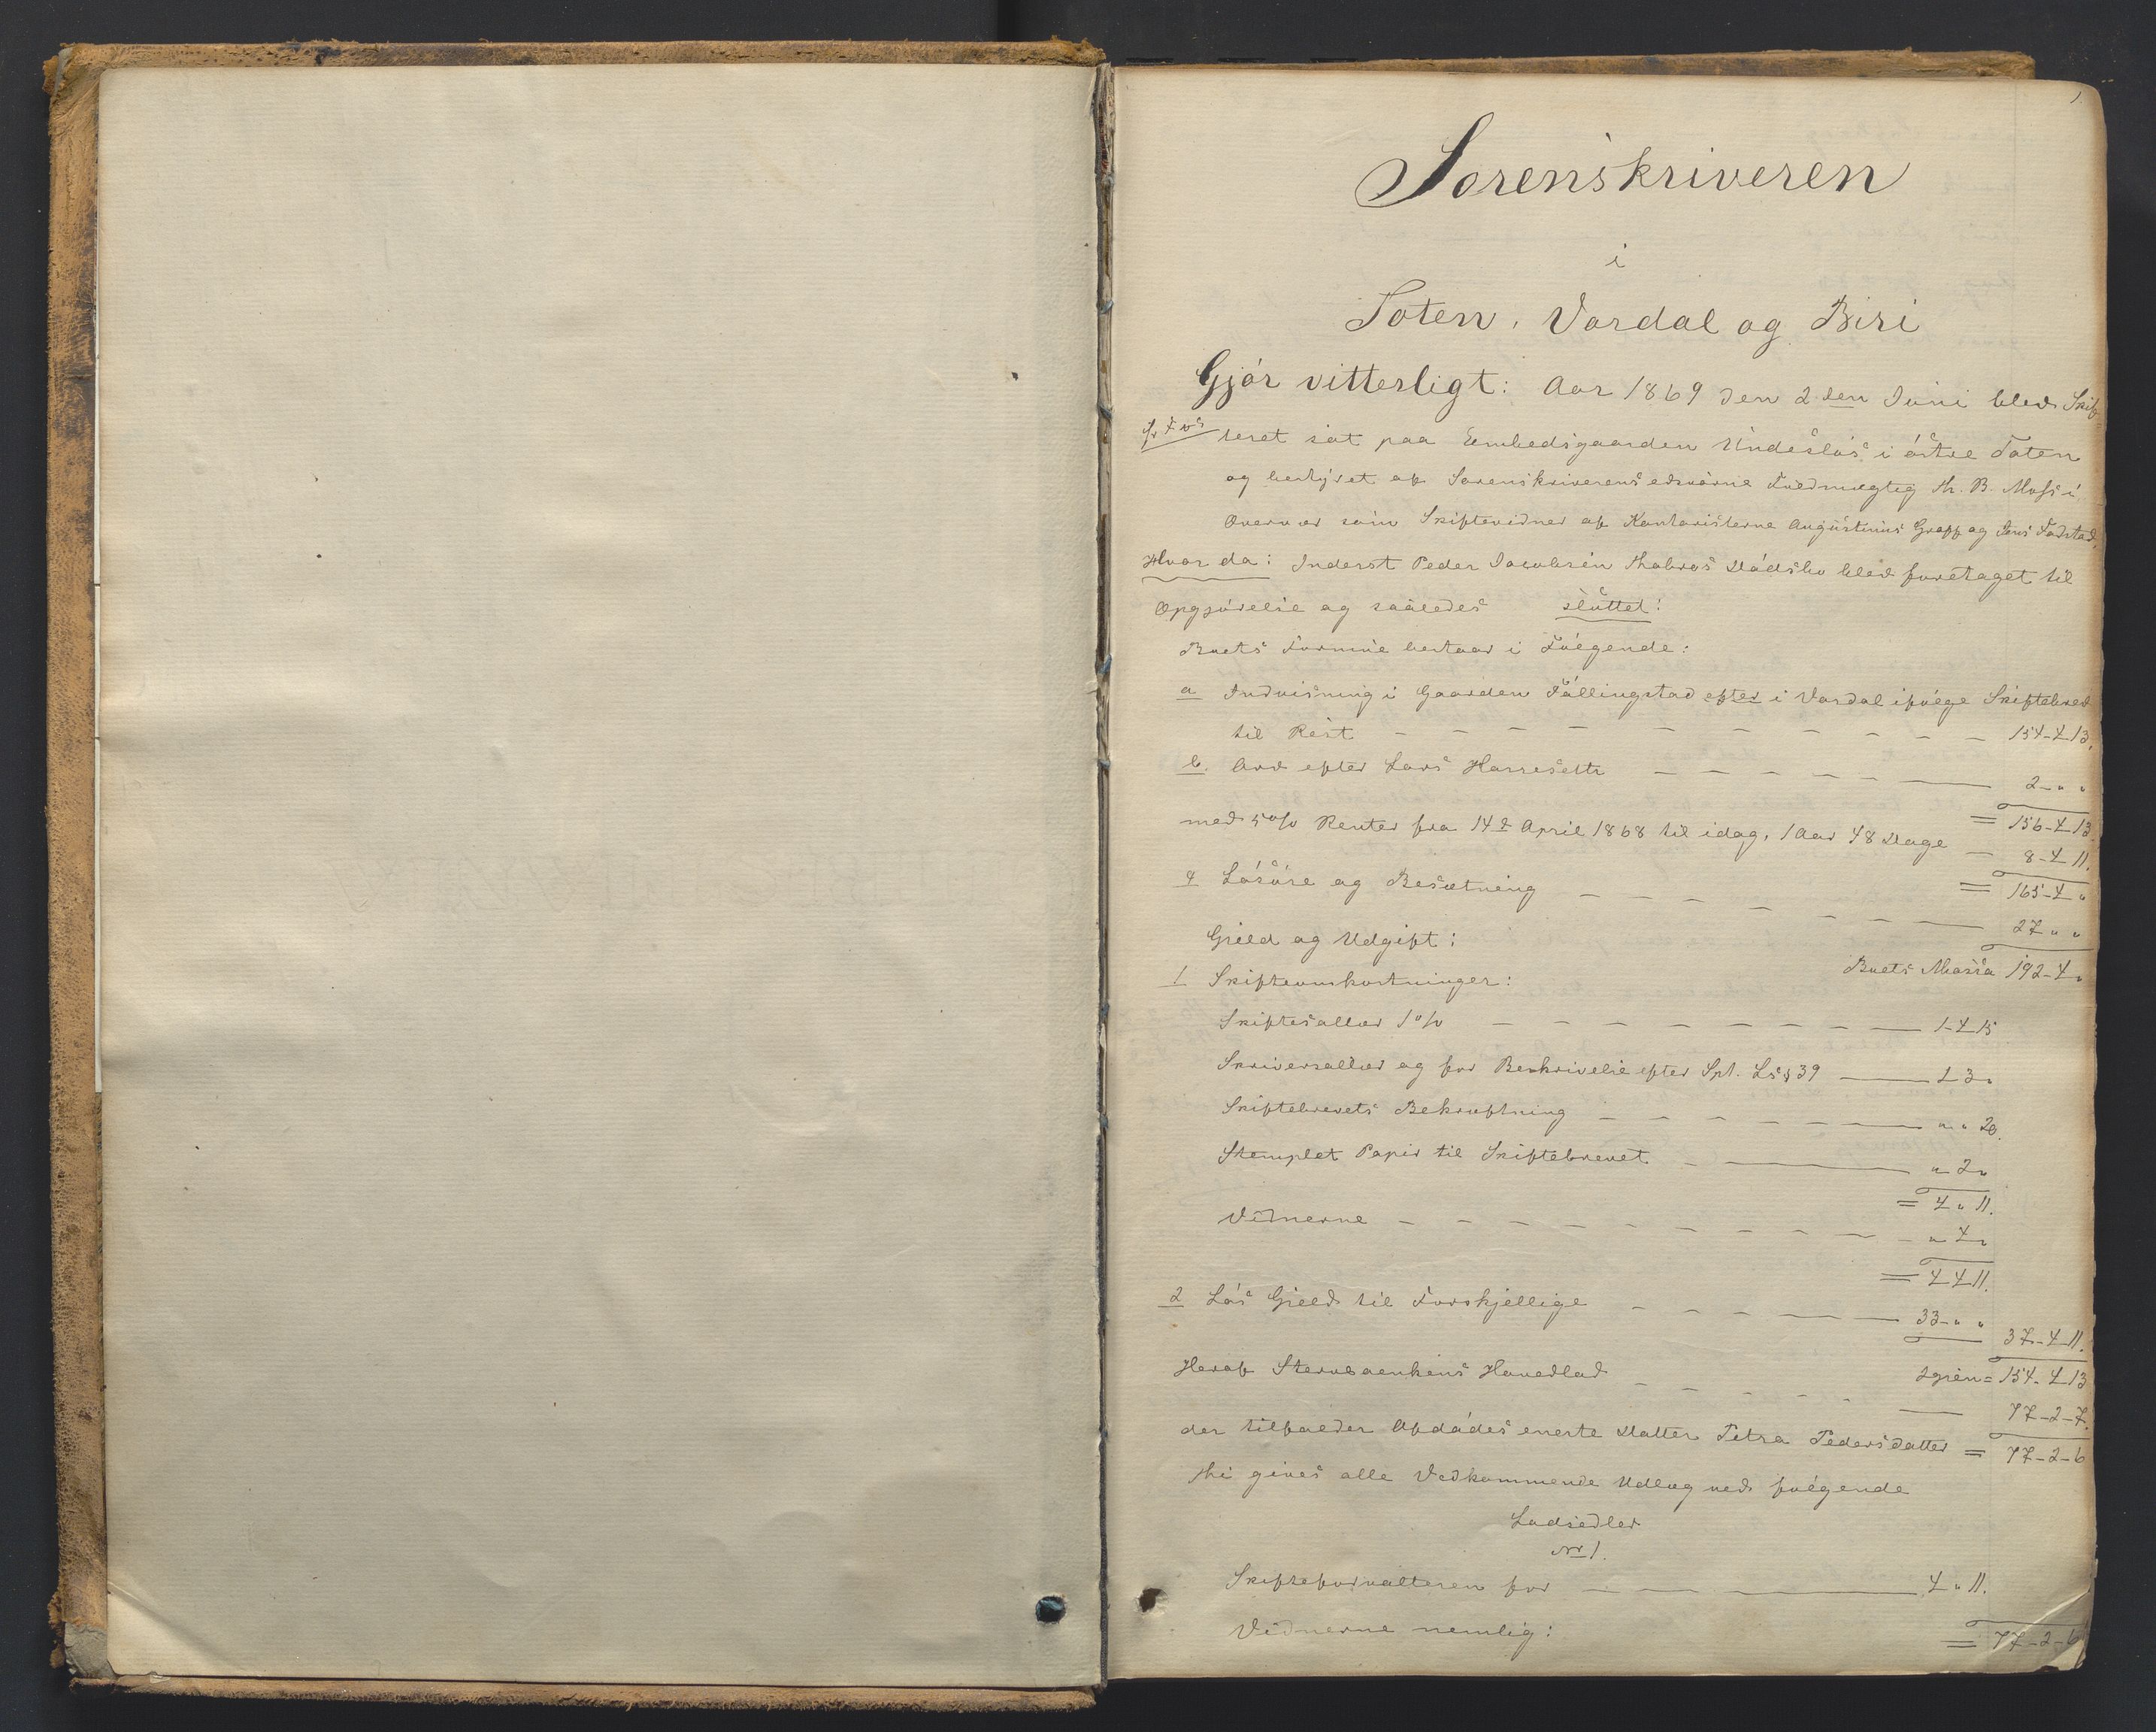 1
Sorenskriveren
i
Toten, Vardal og Biri
Gjör vitterligt: Aar 1869 den 2den Juni blev Skif-
teret sat paa Embedsgaarden Undeslös i östre Toten
og bestyret af Sorenskriverens edsvorne Fuldmægtig Th. B. Moss i
Overvær som Skiftevidner af Kontoristerne Augustinus Graff og Jens Fodstad.
Hvor da: Inderst Peder Jacobsen Thokros Dödsbo blev foretaget til
Opgjörelse og saaledes sluttet:
Boets Formue bestaar i Fölgende:
a Indvisning i Gaarden Fällingstad efter i Vardal ifölge Skiftebrev
til Rest 154-4-13.
b. Arv efter Lars Harseseth 2 - " "
= 156-4-13
med 5 o/o Renter fra 14de April 1868 til idag, 1 Aar 48 Dage 8-4-11.
= 165-4 "
c Lösöre og Besætning 27 " "
Boets Massa 192-4 "
Gjeld og Udgift:
1 Skifteomkostninger:
Skiftesallær 1 o/o 1-4-15
Skriversallær og for Beskrivelse efter Spl. Ls § 39 2 3 "
Skiftebrevets Bekræftning " " 20.
Stemplet Papir til Skiftebrevet " 2 "
= 4 " 11.
Vidnerne " 4 "
= 4 4 11.
2 Lös Gjeld til Forskjellige 33 - " "
37-4-11.
Igjen = 154-4-13
Heraf Stervboenkens Hovedlod 77-2-7.
der tilfalder Afdödes eneste Datter Petra Pedersdatter = 77-2-6
Thi gives alle Vedkommende Udlæg ved fölgende
Lodsedler
No 1.
Skifteforvalteren for 4 " 11.
Vidnerne nemlig:
= 77-2-6